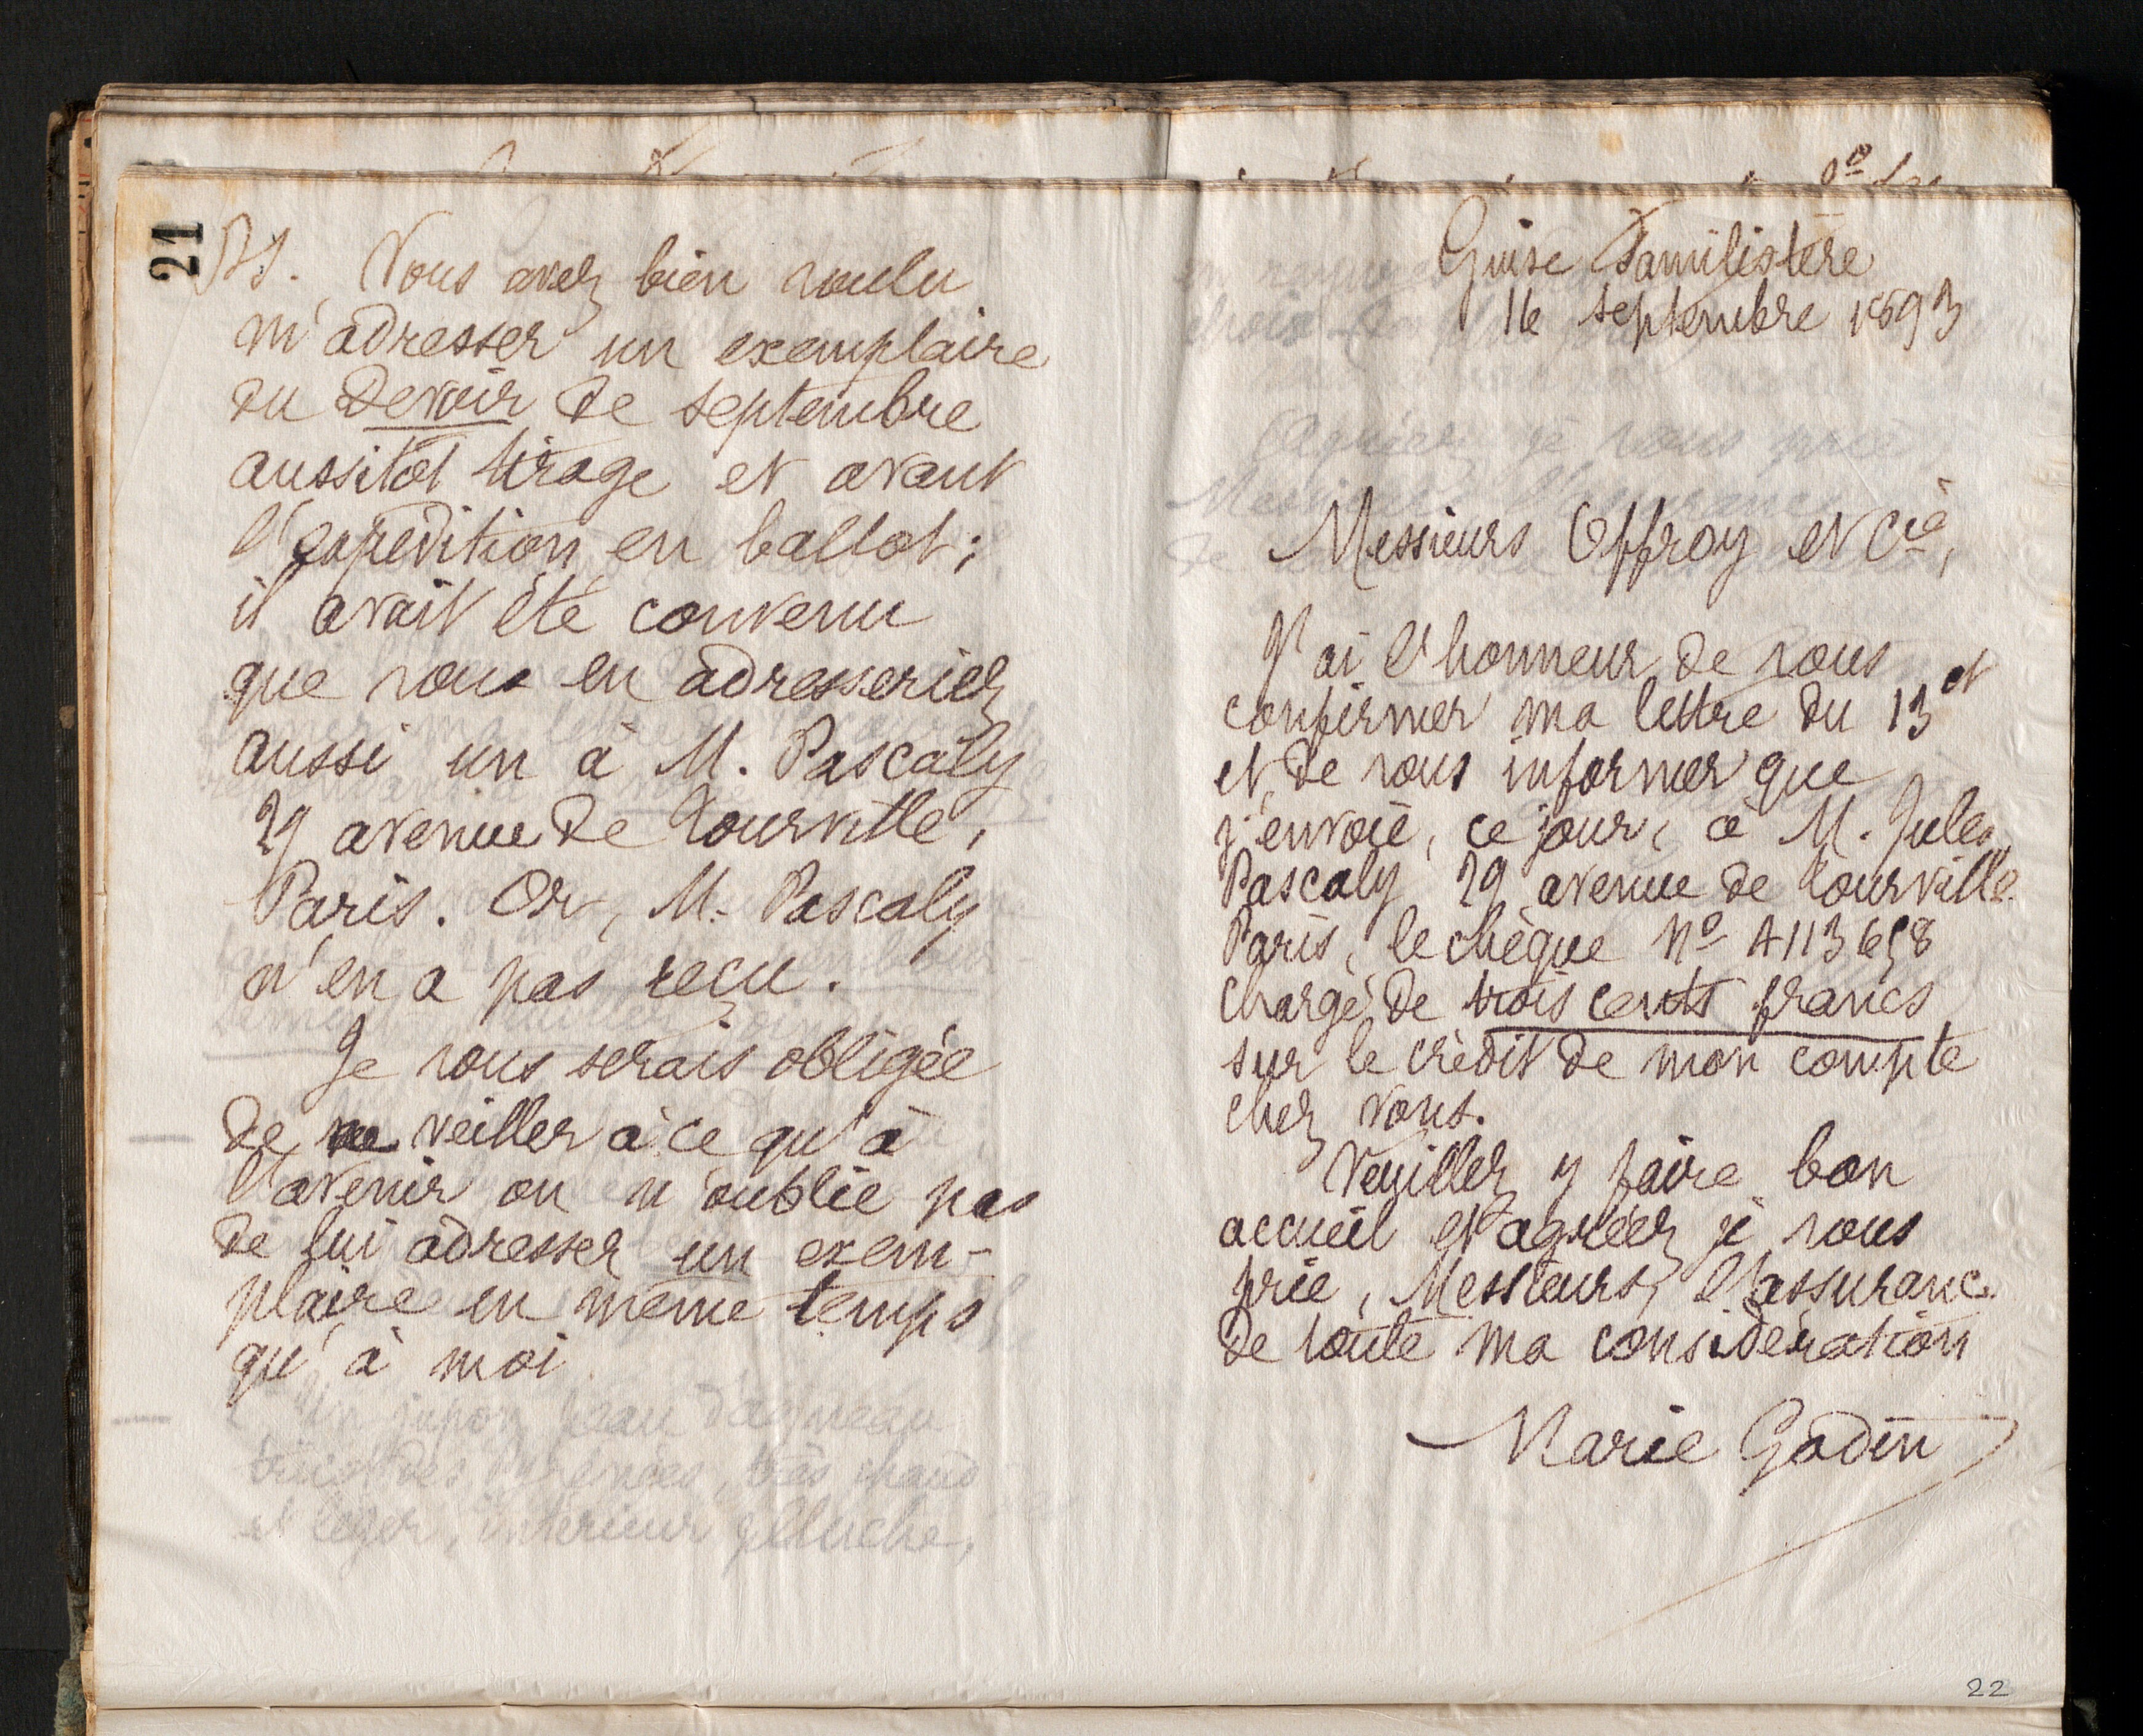 21
PS. Vous avez bien voulu
m'adresser un exemplaire
du Devoir de septembre
aussitôt tirage et avant
l'expédition en ballot ;
il avait été convenu
que vous en adresseriez
aussi un à M. Pascaly
29 avenue de Tourville,
Paris. Or, M. Pascaly
n'en a pas reçu.
Je vous serais obligée
de veiller à ce qu'à
l'avenir on n'oublie pas
de lui adresser un exem-
plaire en même temps
qu'à moi
Guise Familistère
16 septembre 1893
Messieurs Offroy et Cie,
J'ai l'honneur de vous
confirmer ma lettre du 13 ct
et de vous informer que
j'envoie, ce jour, à M. Jules
Pascaly 29 avenue de Tourville
Paris, le chèque No 4113658
chargé de trois cents francs
sur le crédit de mon compte
chez vous.
Veuillez y faire bon
accueil et agréez je vous
prie, Messieurs, l'assurance
de toute ma considération
Marie Godin
22